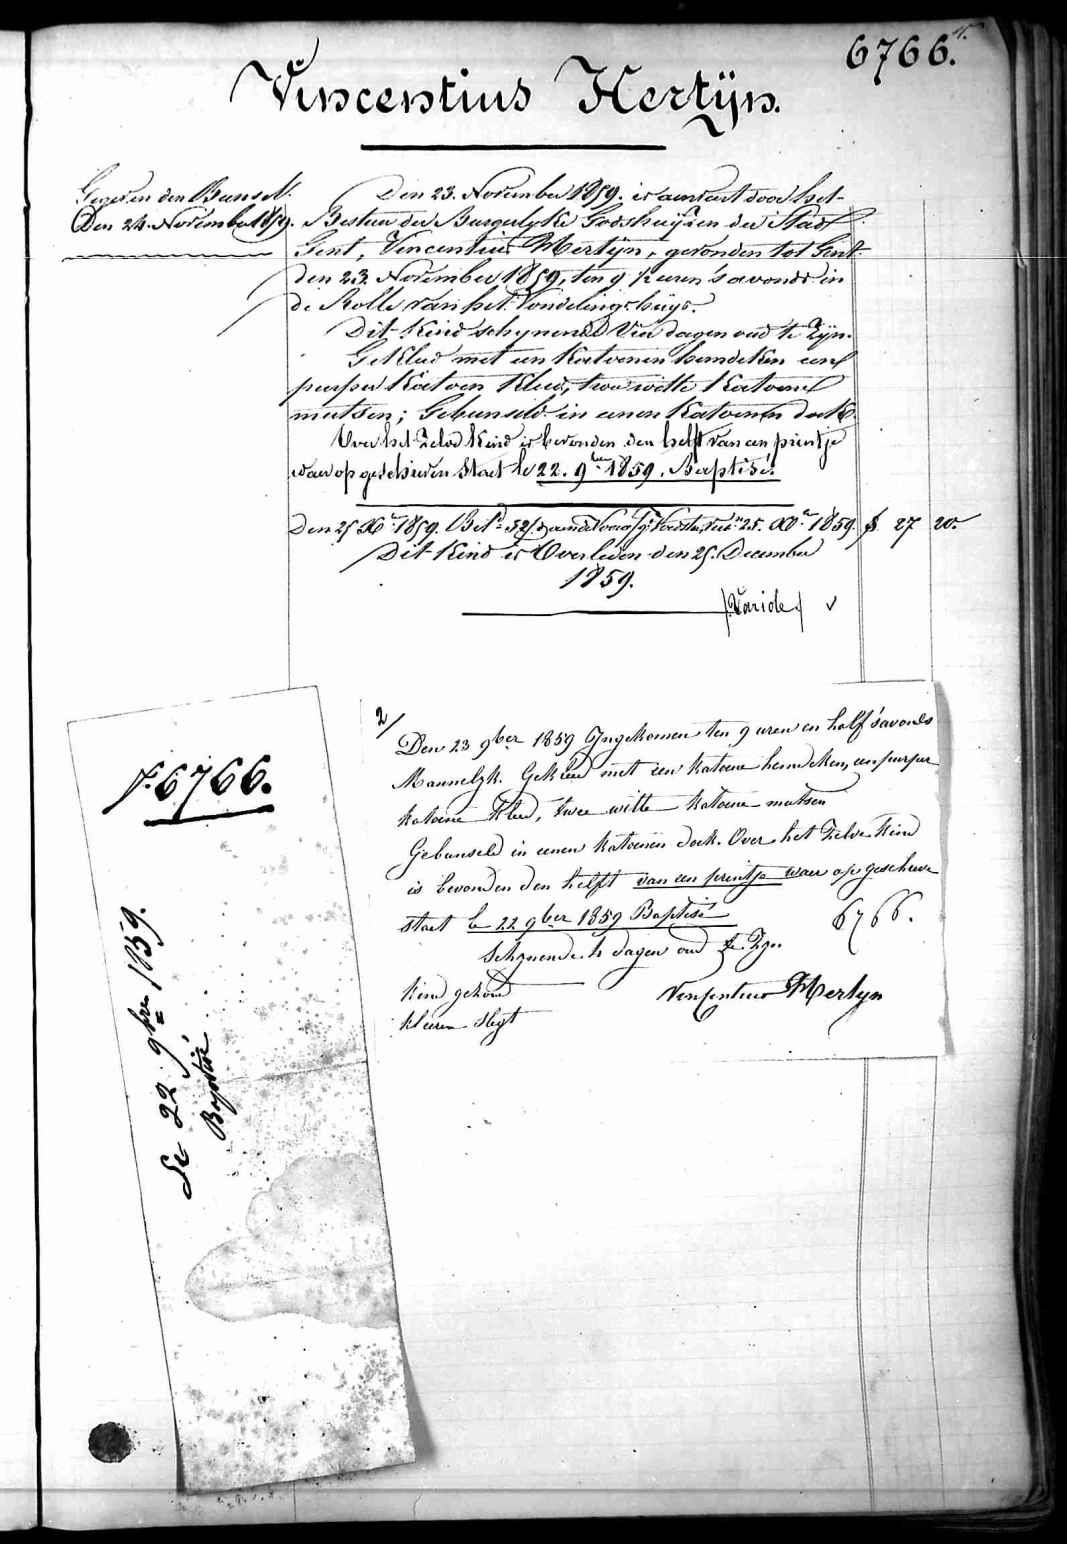 6766.
Vincentius Hertÿn.
Gegeven den Bunsel
Den 24. November 1859.
Den 23. November 1859. is aenveert door het
Bestier der Burgerlyke Godshuijzen der Stad
Gent, Vincentius Hertÿn, gevonden tot Gent
den 23 November 1859, ten 9 ½ uren 's avonds in
de Rolle van het Vondelingshuys.
Dit Kind schynende Vier dagen oud te Zyn.
Gekleed met een Katoenen hemdeken een
purper Katoen Kleed, twee witte Katoene
mutsen; Gebunseld in eenen Katoenen doek.
Over het Zelve Kind is bevonden den helft van een prientje
waer op geschreven Staet le 22. 9bre 1859. Baptisé.
Den 25 Xbr 1859. 25. Xbr 1859 f 27 20
Dit Kind is Overleden den 25. December
1859.
(Variole) v
f. 6766.
Le 22 9bre 1859.
Baptisé
2/
Den 23 9ber 1859 Ingekomen ten 9 uren en half s'avonds
Mannelyk. Gekleed met een katoene hemdeken, een purper
katoene kleed, twee witte katoene mutsen
Gebunseld in eenen katoenen doek. Over het Zelve Kind
is bevonden den helft van een prientje waer op geschreve
staet le 22 9ber 1859 Baptisé 6766.
Schynende 4 dagen oud te Zyn.
Kind gezond Vincentius Hertyn
kleeren slegt